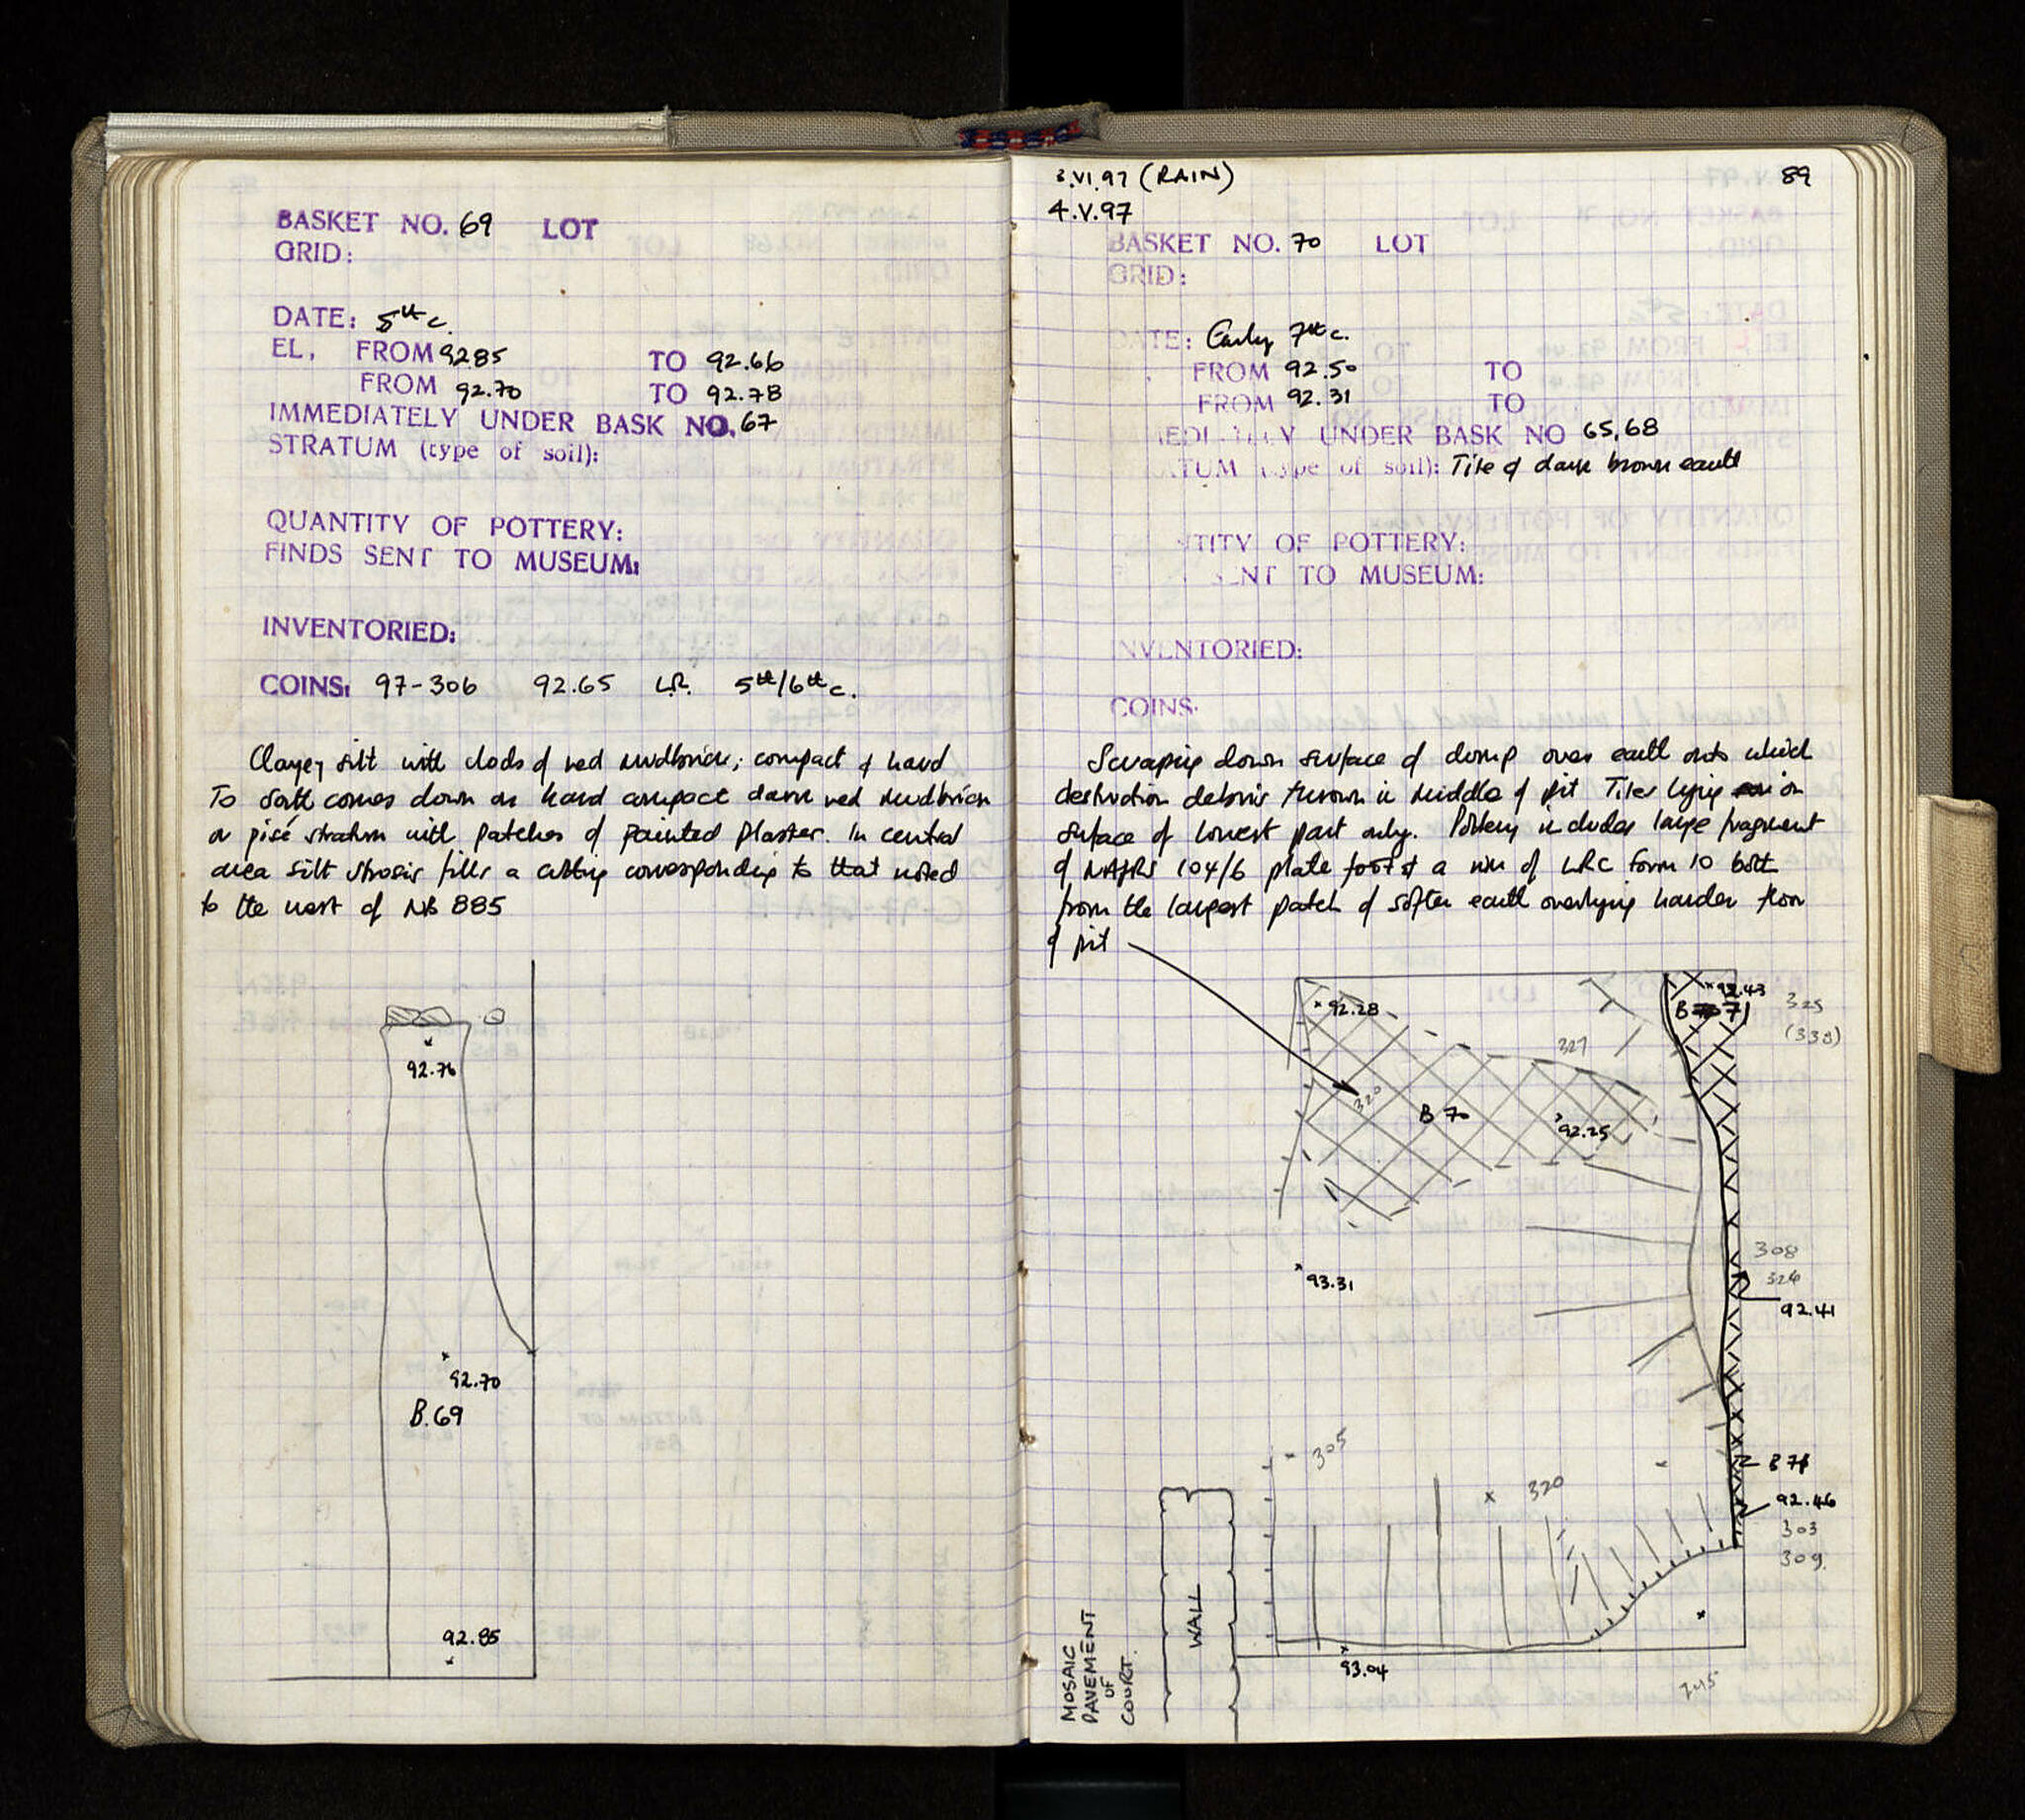 BASKET NO. 69 LOT
GRID:
DATE: 5th c.
EL, FROM 92.85 TO 92.66
FROM 92.70 TO 92.78
IMMEDIATELY UNDER BASK NO. 67
STRATUM (type of soil):
QUANTITY OF POTTERY:
FINDS SENT TO MUSEUM:
INVENTORIED:
COINS: 97-306 92.65 LR. 5th/6th c.
Clayey silt with clods of red mudbrick; compact & hard
To South comes down on hard compact dark red mudbrick
or pisé stratum with patches of painted plaster. In central
area silt strosis fills a cutting corresponding to that noted
to the west of NB 885
92.76
92.70
B.69
92.85
3.VI.97 (RAIN) 89
4.V.97
BASKET NO. 70 LOT
GRID:
DATE: Early 7th c.
FROM 92.50 TO
FROM 92.31 TO
UNDER BASK NO 65,68
(type of soil): Tile & dark brown earth
TITY OF POTTERY:
SENT TO MUSEUM:
INVENTORIED:
COINS:
Scraping down surface of dump over earth onto which
destruction debris thrown in middle of pit Tiles lying on
surface of lowest part only. Pottery includes large fragment
of 104/6 plate foot & a rim of LRC form 10 both
from the largest patch of softer earth overlying harder floor
of pit
92.28
92.43
B 71
325
(338)
327
320
B 70
92.25
93.31
308
326
92.41
305
320
B 71
92.46
303
309.
WALL
MOSAIC
PAVEMENT
OF
COURT.
93.04
745